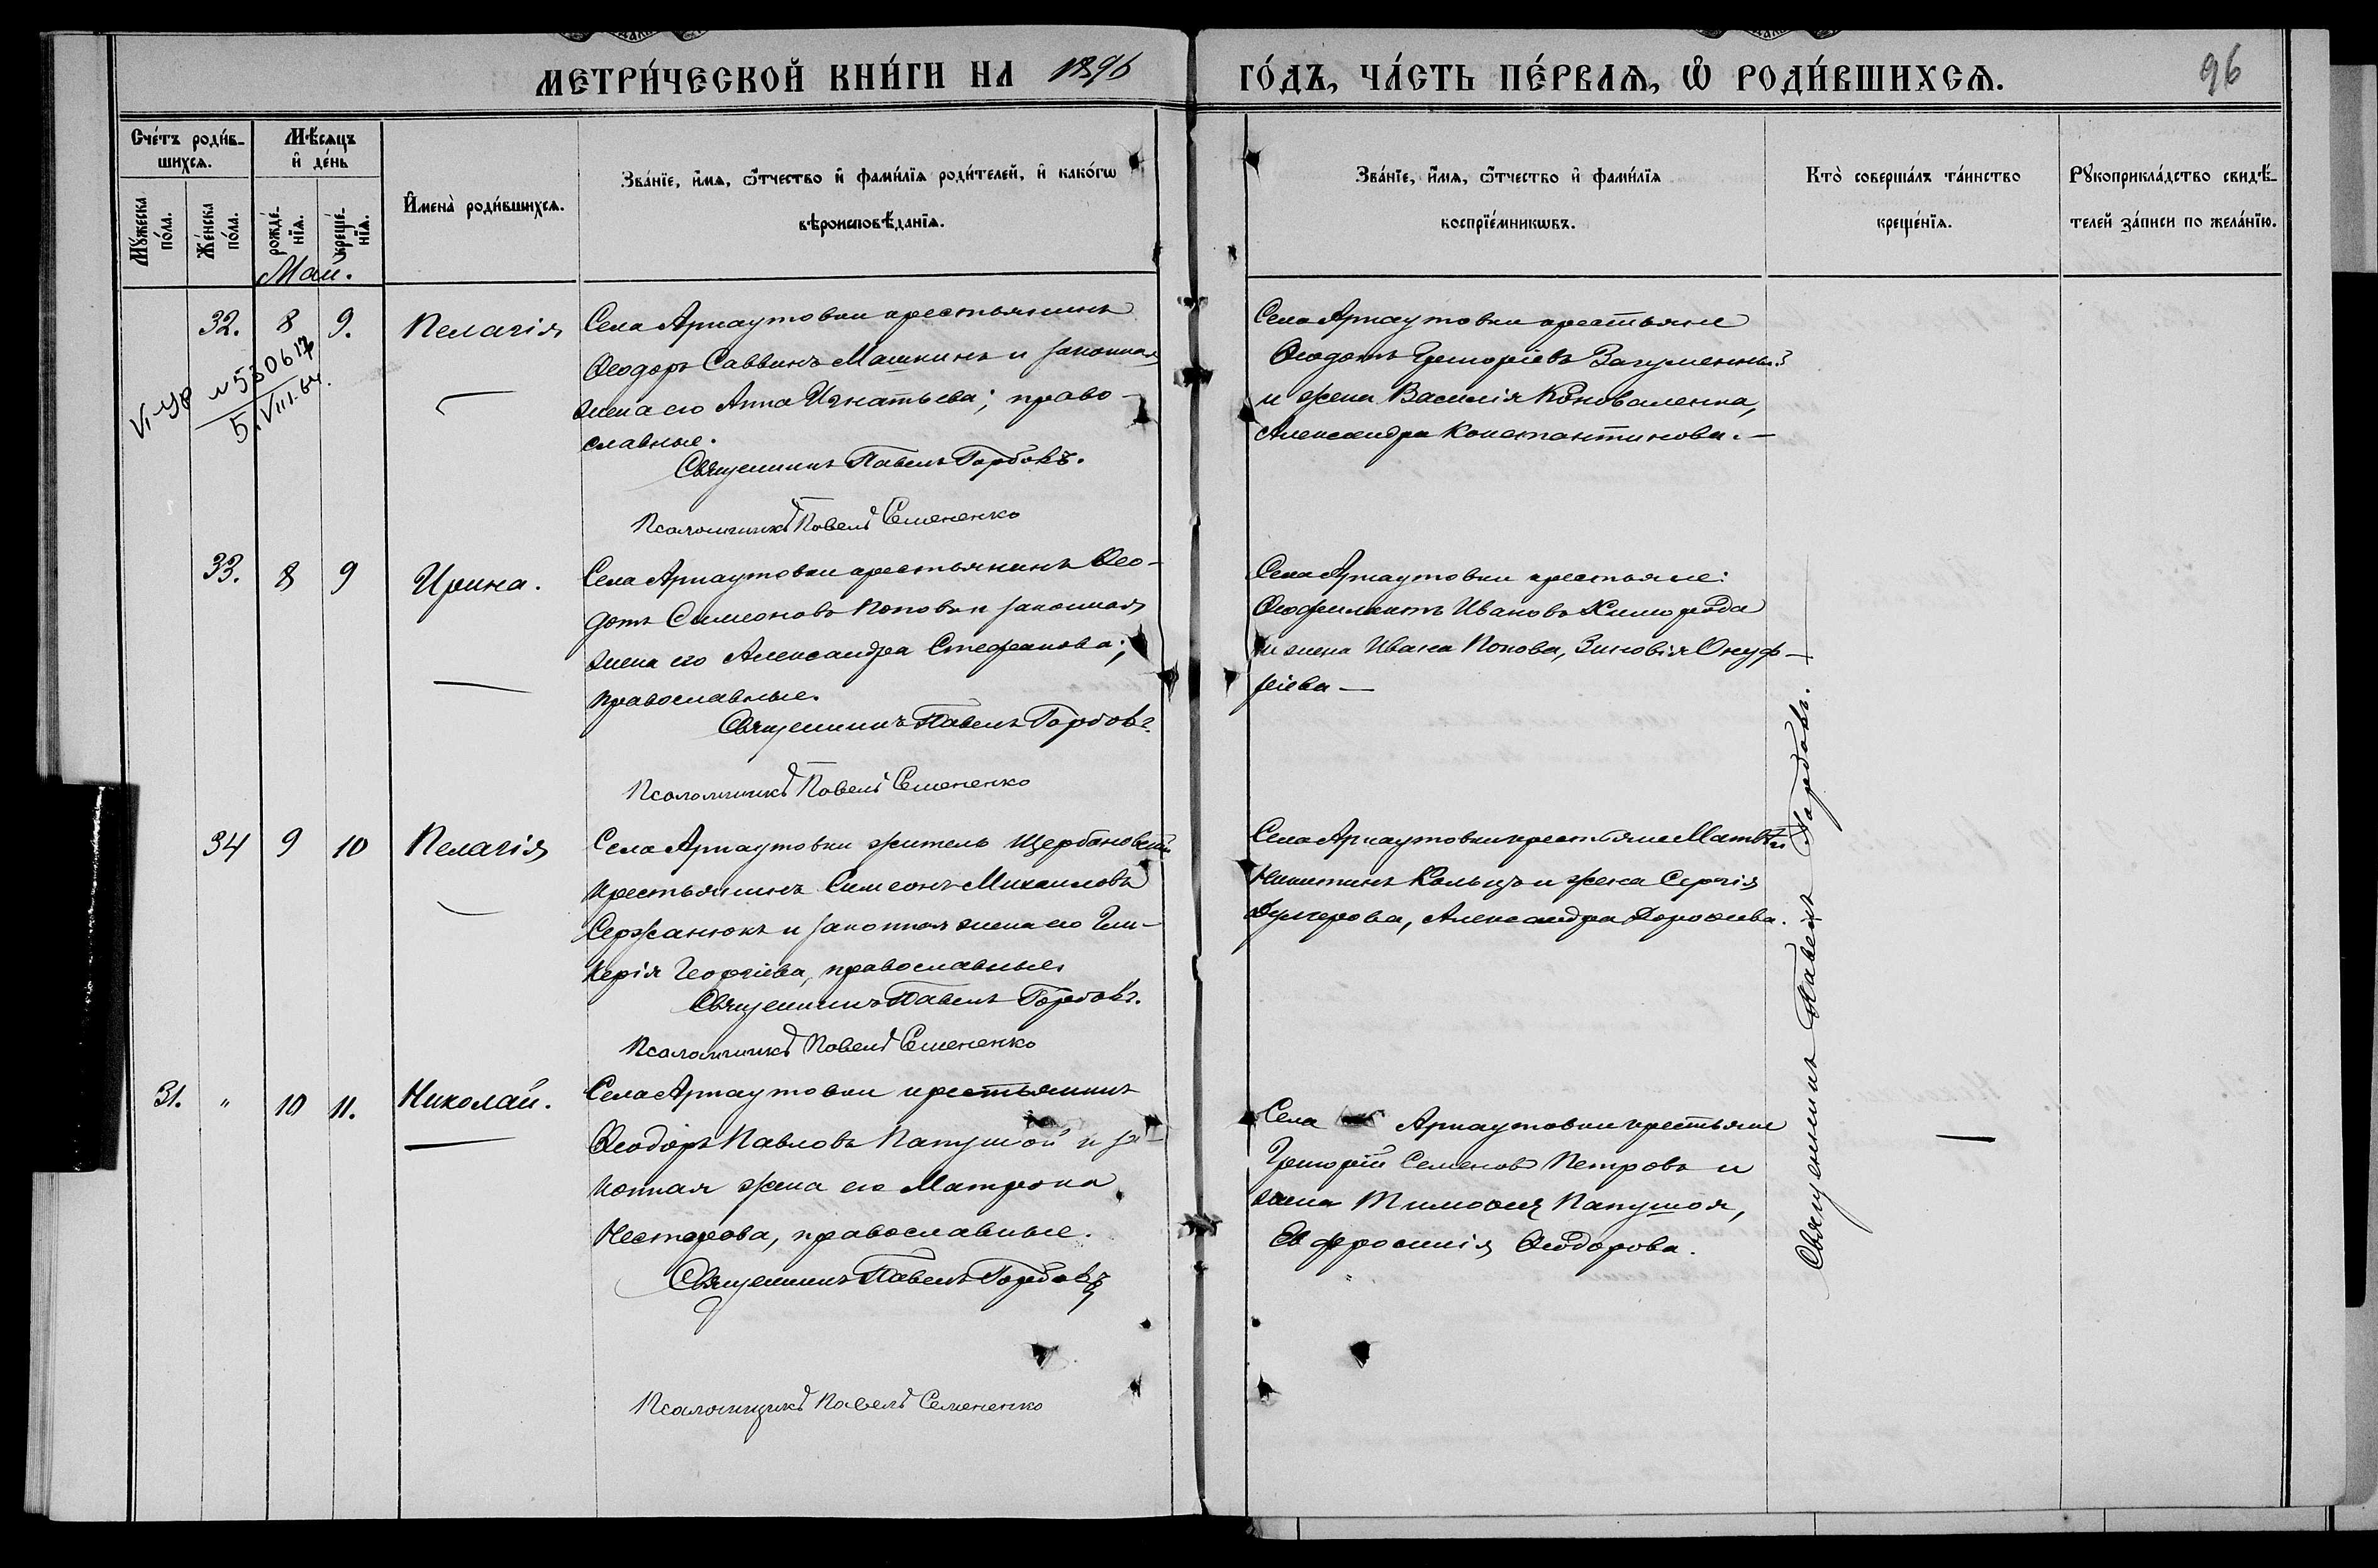 МЕТРИ́ЧЕСКОЙ КНИ́ГИ НА 1896 ГО́ДЪ, ЧА́СТЬ ПЕ́РВАѦ, Ѡ҆ РОДИ́ВШИХСѦ.
96
Сче́тъ роди́в-
шихсѧ.
Мѣ́сѧцъ
и҆ де́нь
И҆мена̀ роди́вшихсѧ.
Зва́нїе, и҆́мѧ, ѻ҆́тчество и҆ фами́лїѧ роди́телей, и҆ како́гѡ
вѣроисповѣ́данїѧ.
Зва́нїе, и҆́мѧ, ѻ҆́тчество и҆ фами́лїѧ
воспрїе́мникѡвъ.
Кто̀ соверша́лъ та́инство
креще́нїѧ.
Рꙋкоприкла́дство свидѣ́-
телей за́писи по жела́нїю.
Мꙋ́жеска
по́ла.
Же́нска
по́ла.
рожде́-
нїѧ.
креще́-
нїѧ.
Май.
32. 8 9. Пелагія
Села Арнаутовки крестьянинъ
Ѳеодоръ Саввинъ Машкинъ и законная
жена его Анна Игнатьева; право-
славные.
Священникъ Павелъ Горбовъ.
Псаломщикъ Павелъ Семененко
Села Арнаутовки крестьяне
Ѳеодотъ Григоріевъ Загуменный
и жена Василія Коноваленка,
Александра Константинова. —
VI-УР №530617
5.VIII.64.
33. 8 9 Ирина.
Села Арнаутовки крестьянинъ Ѳео-
дотъ Симеоновъ Поповъ и законная
жена его Александра Стефанова;
православные.
Священникъ Павелъ Горбовъ.
Псаломщикъ Павелъ Семененко
Села Арнаутовки крестьяне:
Ѳеофилактъ Ивановъ
и жена Ивана Попова, Зиновія Онуф-
ріева —
34 9 10 Пелагія
Села Арнаутовки житель Щербановскій
крестьянинъ Симеонъ Михаиловъ
Сержанюкъ и законная жена его Гли-
керія Георгіева, православные.
Священникъ Павелъ Горбовъ.
Псаломщикъ Павелъ Семененко
Села Арнаутовки крестьяне Матвѣй
Никитинъ Кольцъ и жена Сергія
Дулгерова, Александра Дороѳеева.
31. " 10 11. Николай.
Села Арнаутовки крестьянинъ
Ѳеодоръ Павловъ Папушой и за-
конная жена его Матрона
Нестерова, православные.
Священникъ Павелъ Горбовъ
Псаломщикъ Павелъ Семененко
Села Арнаутовки крестьяне
Григорій Семеновъ Петровъ и
жена Тимоѳея Папушоя,
Евфросинія Ѳеодорова.
Священникъ Павелъ Горбовъ.